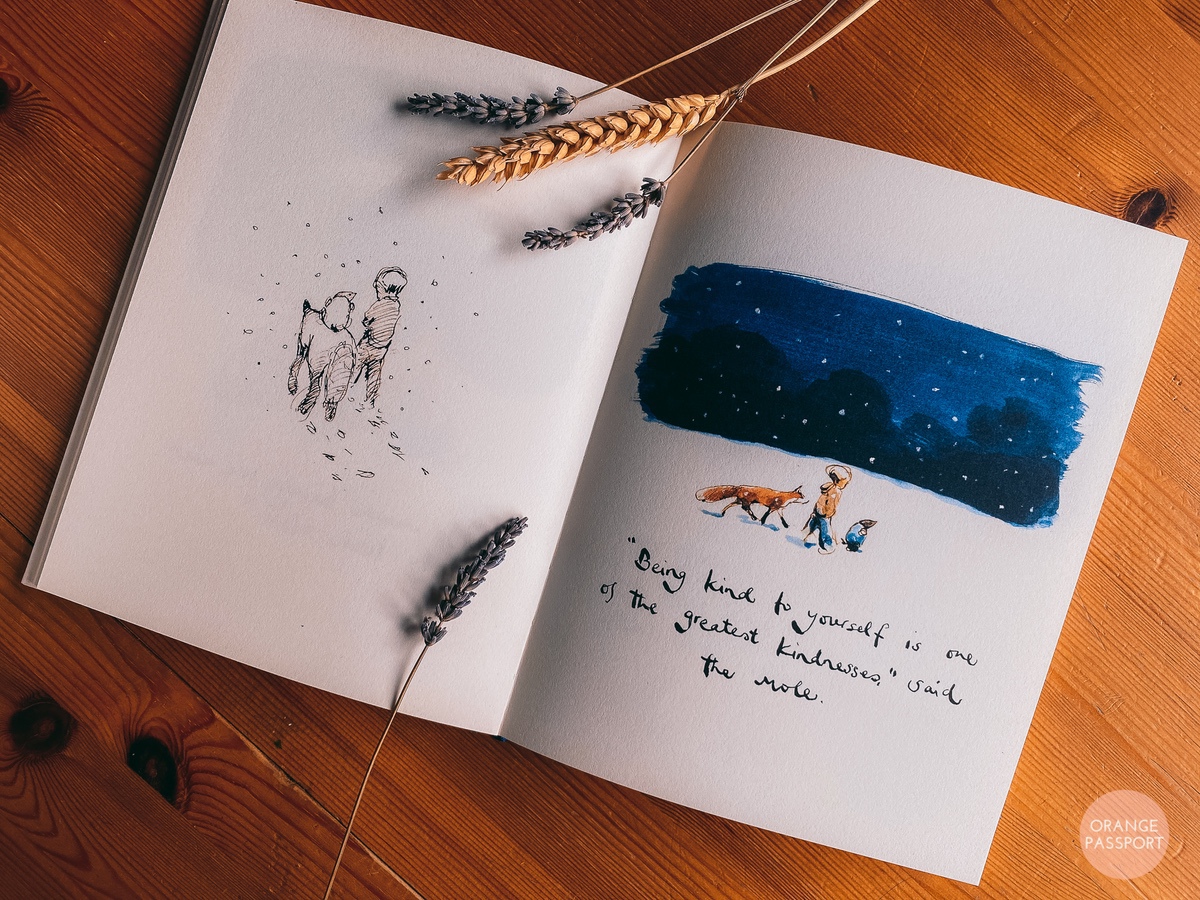 "Being kind to yourself is one
of the greatest kindnesses," said
the mole.
ORANGE
PASSPORT